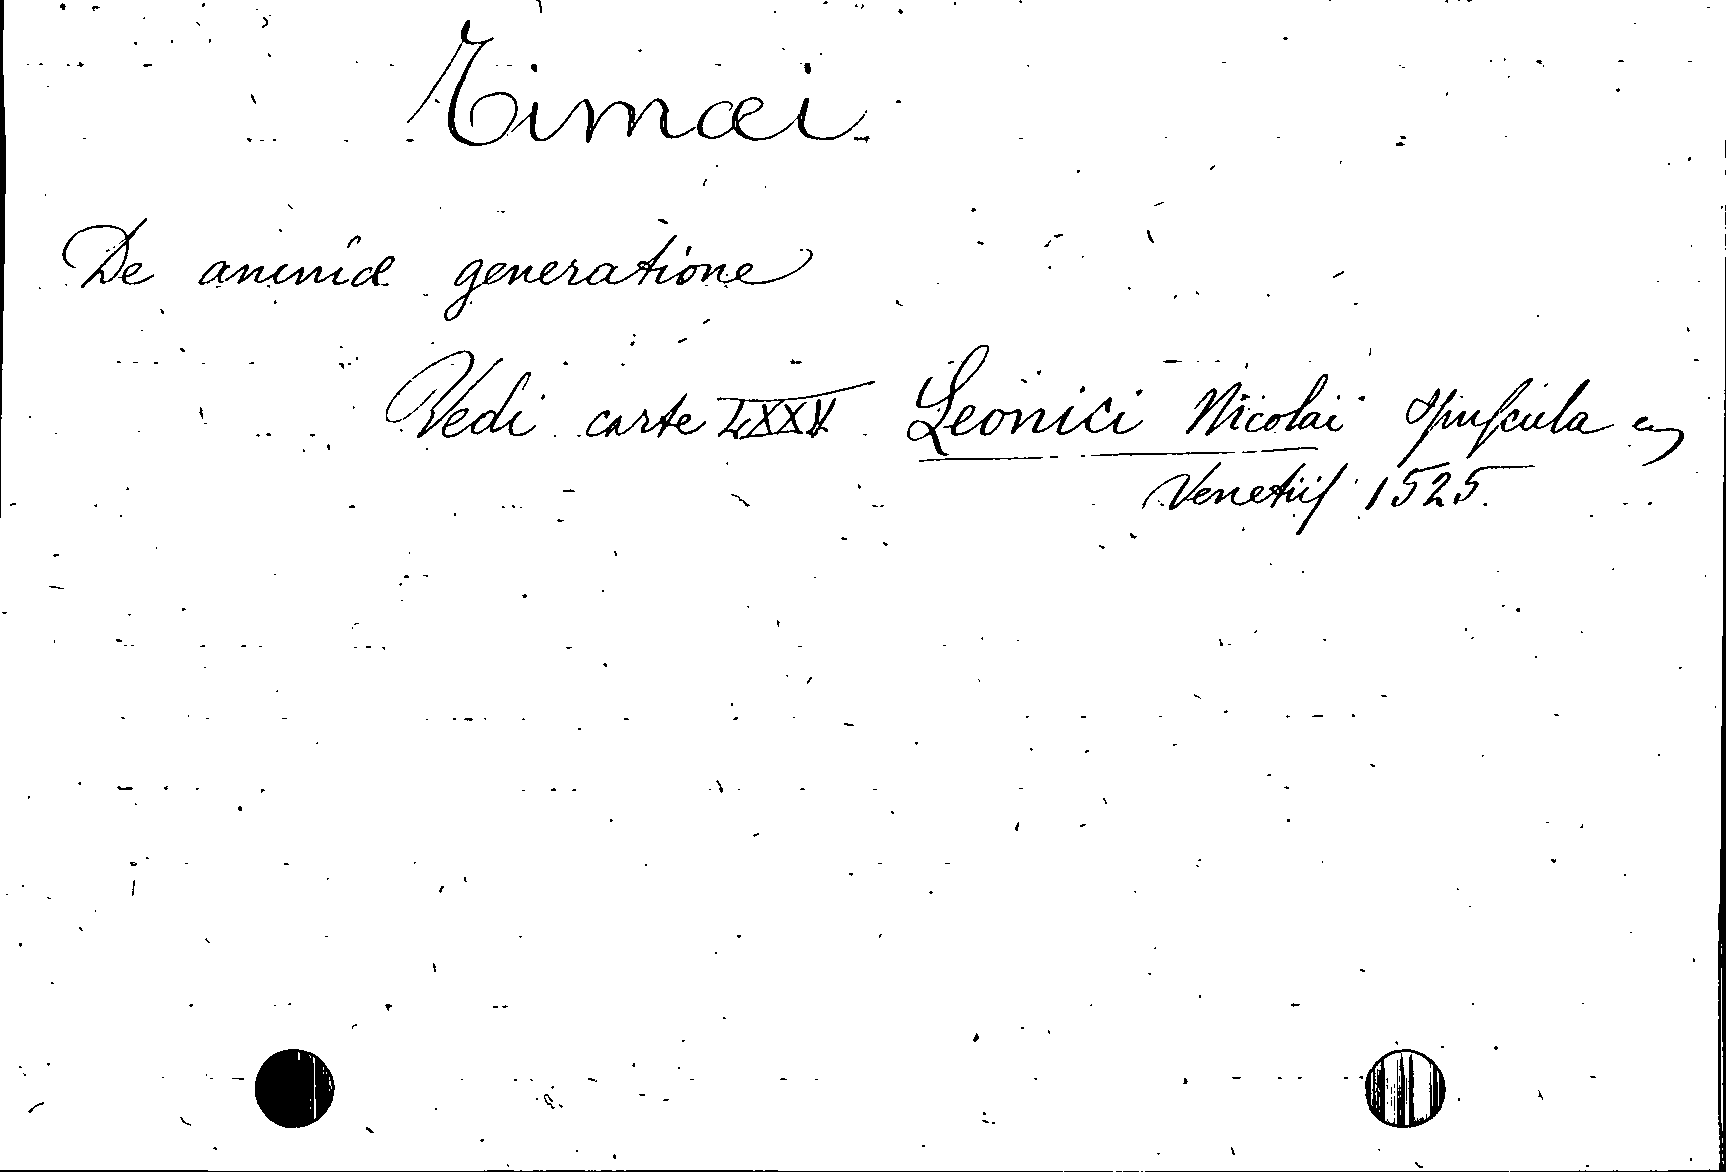 Timæi
De animæ generatione
Vedi carte LXXV Leonici Nicolai Opuscula
Venetiis 1525